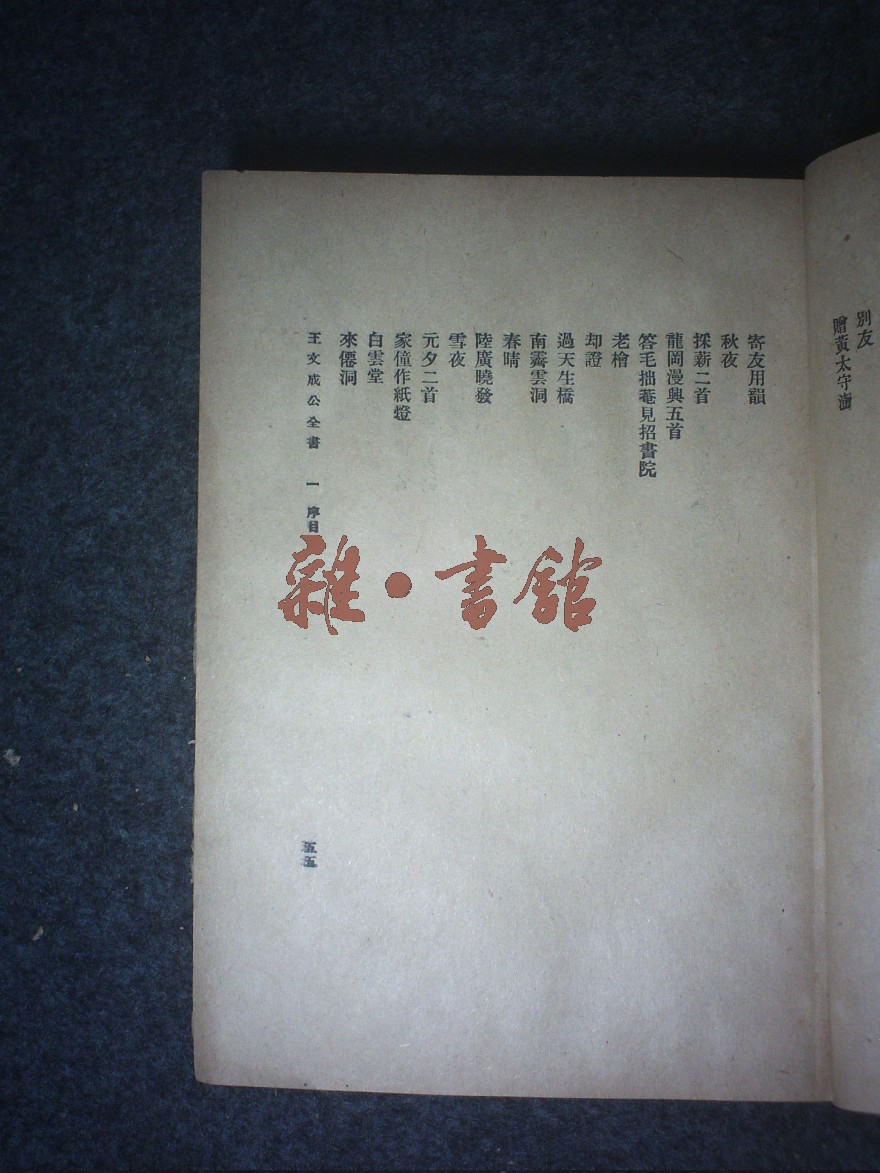 別友
贈黃太守澍
寄友用韻
秋夜
採薪二首
龍岡漫興五首
答毛拙菴見招書院
老檜
却巫
過天生橋
南霽雲洞
春晴
陸廣曉發
雪夜
元夕二首
家僮作紙燈
白雲堂
來僊洞
王文成公全書 一 序目
五五
雜·書館